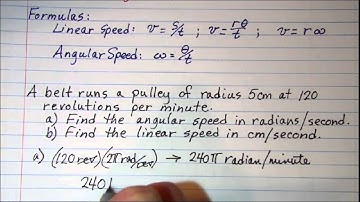 Formulas:
Linear Speed: v = s/t ; v = rθ/t ; v = rω
Angular Speed: ω = θ/t
A belt runs a pulley of radius 5cm at 120
revolutions per minute.
a) Find the angular speed in radians/second.
b) Find the linear speed in cm/second.
a) (120 rev)(2π rad/rev) → 240π radian/minute
240